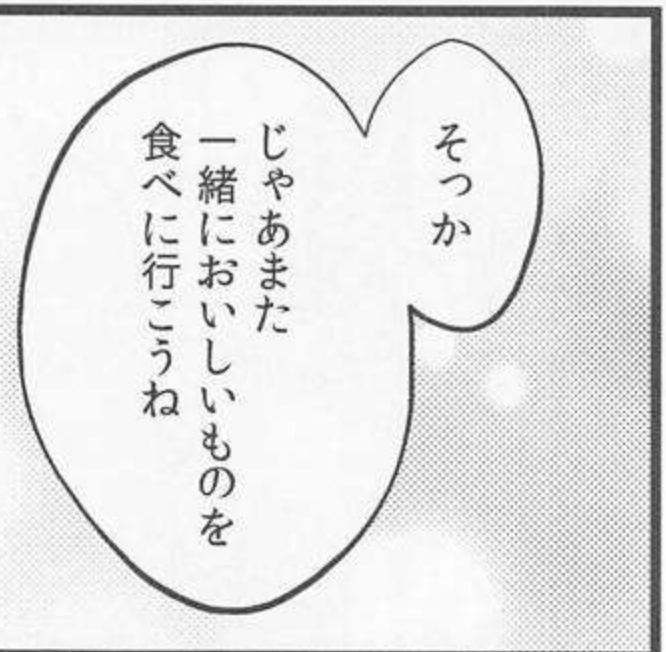 そっか
じゃあまた
一緒においしいものを
食べに行こうね